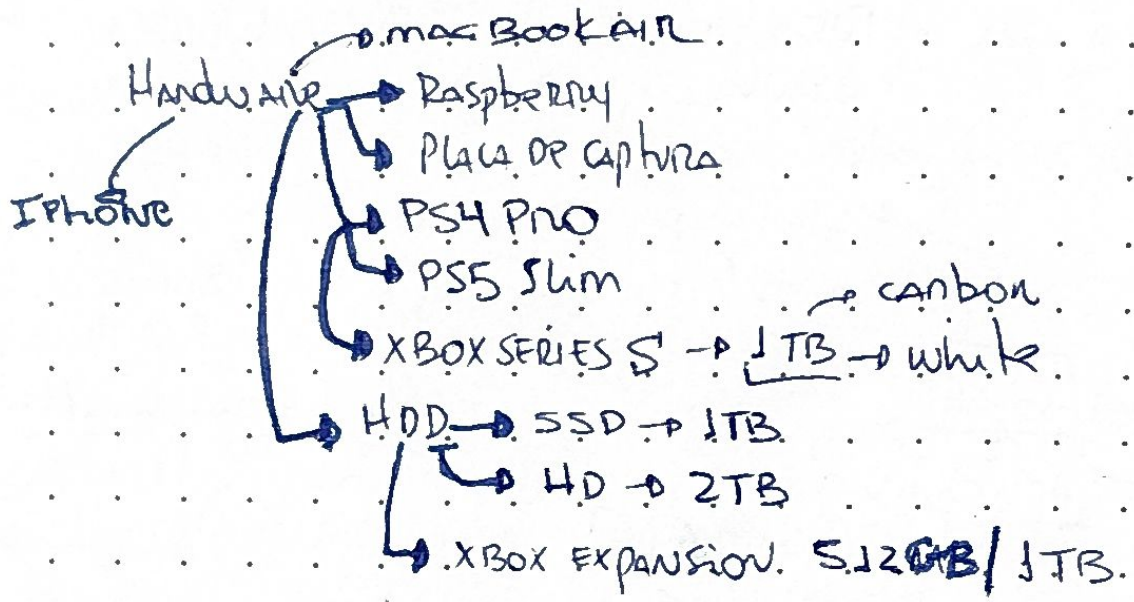 MacBook Air
Hardware
Raspberry
Placa de captura
Iphone
PS4 Pro
PS5 Slim
carbon
XBOX SERIES S → 1TB → white
HDD → SSD → 1TB
HD → 2TB
XBOX EXPANSION. 512GB/1TB.